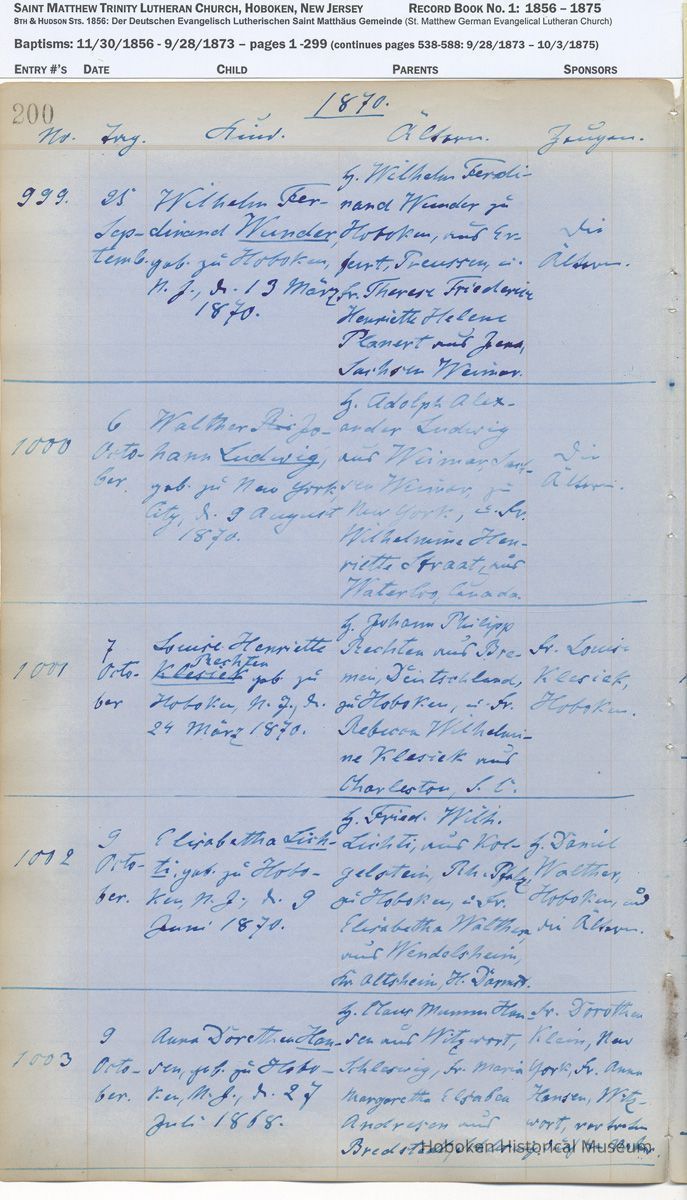 SAINT MATTHEW TRINITY LUTHERAN CHURCH, HOBOKEN, NEW JERSEY RECORD BOOK NO. 1: 1856 – 1875
8TH & HUDSON STS. 1856: Der Deutschen Evangelisch Lutherischen Saint Matthäus Gemeinde (St. Matthew German Evangelical Lutheran Church)
Baptisms: 11/30/1856 - 9/28/1873 – pages 1 -299 (continues pages 538-588: 9/28/1873 – 10/3/1875)
ENTRY #'S DATE CHILD PARENTS SPONSORS
200
1870.
No. Tag. Kind. Ältern. Zeugen.
999.
25
Septemb.
Wilhelm Fer-
dinand Wunder,
geb. zu Hoboken,
N. J., d. 13 März
1870.
H. Wilhelm Ferdi-
nand Wunder zu
Hoboken, aus Er-
furt, Preussen, u.
Fr. Therese Friederike
Henriette Helene
Planert aus Jena,
Sachsen Weimar.
Die
Ältern.
1000
6
Octo-
ber.
Walther Jo-
hann Ludwig,
geb. zu New York
City, d. 9 August
1870.
H. Adolph Alex-
ander Ludwig
aus Weimar, Sach-
sen Weimar, zu
New York, u. Fr.
Wilhelmine Hen-
riette Straat, aus
Waterloo, Canada.
Die
Ältern.
1001
7
Octo-
ber
Louise Henriette
Rechten
Klesick geb. zu
Hoboken, N. J., d.
24 März 1870.
H. Johann Philipp
Rechten aus Bre-
men, Deutschland,
zu Hoboken, u. Fr.
Rebecca Wilhelmi-
ne Klesick aus
Charleston, S. C.
Fr. Louise
Klesick,
Hoboken.
1002
9
Octo-
ber.
Elisabetha Lich-
ti, geb. zu Hobo-
ken, N. J., d. 9
Juni 1870.
H. Fried. Wilh.
Lichti, aus Kol-
gelstein, Rh. Pfalz,
zu Hoboken, u. Fr.
Elisabetha Walther,
aus Wendelsheim,
Kr. Altshein, H. Darmst.
H. Daniel
Walther,
Hoboken, und
die Ältern.
1003
9
Octo-
ber.
Anna Dorethea Han-
sen, geb. zu Hobo-
ken, N. J., d. 27
Juli 1868.
H. Claus Mumm Han-
sen aus Witzwort,
Schleswig, Fr. Maria
Margaretha Elsabea
Andresen aus
Fr. Dorothea
Klein, New
York, Fr. Anna
Hansen, Witz-
wort, vertreten
Hoboken Historical Museum